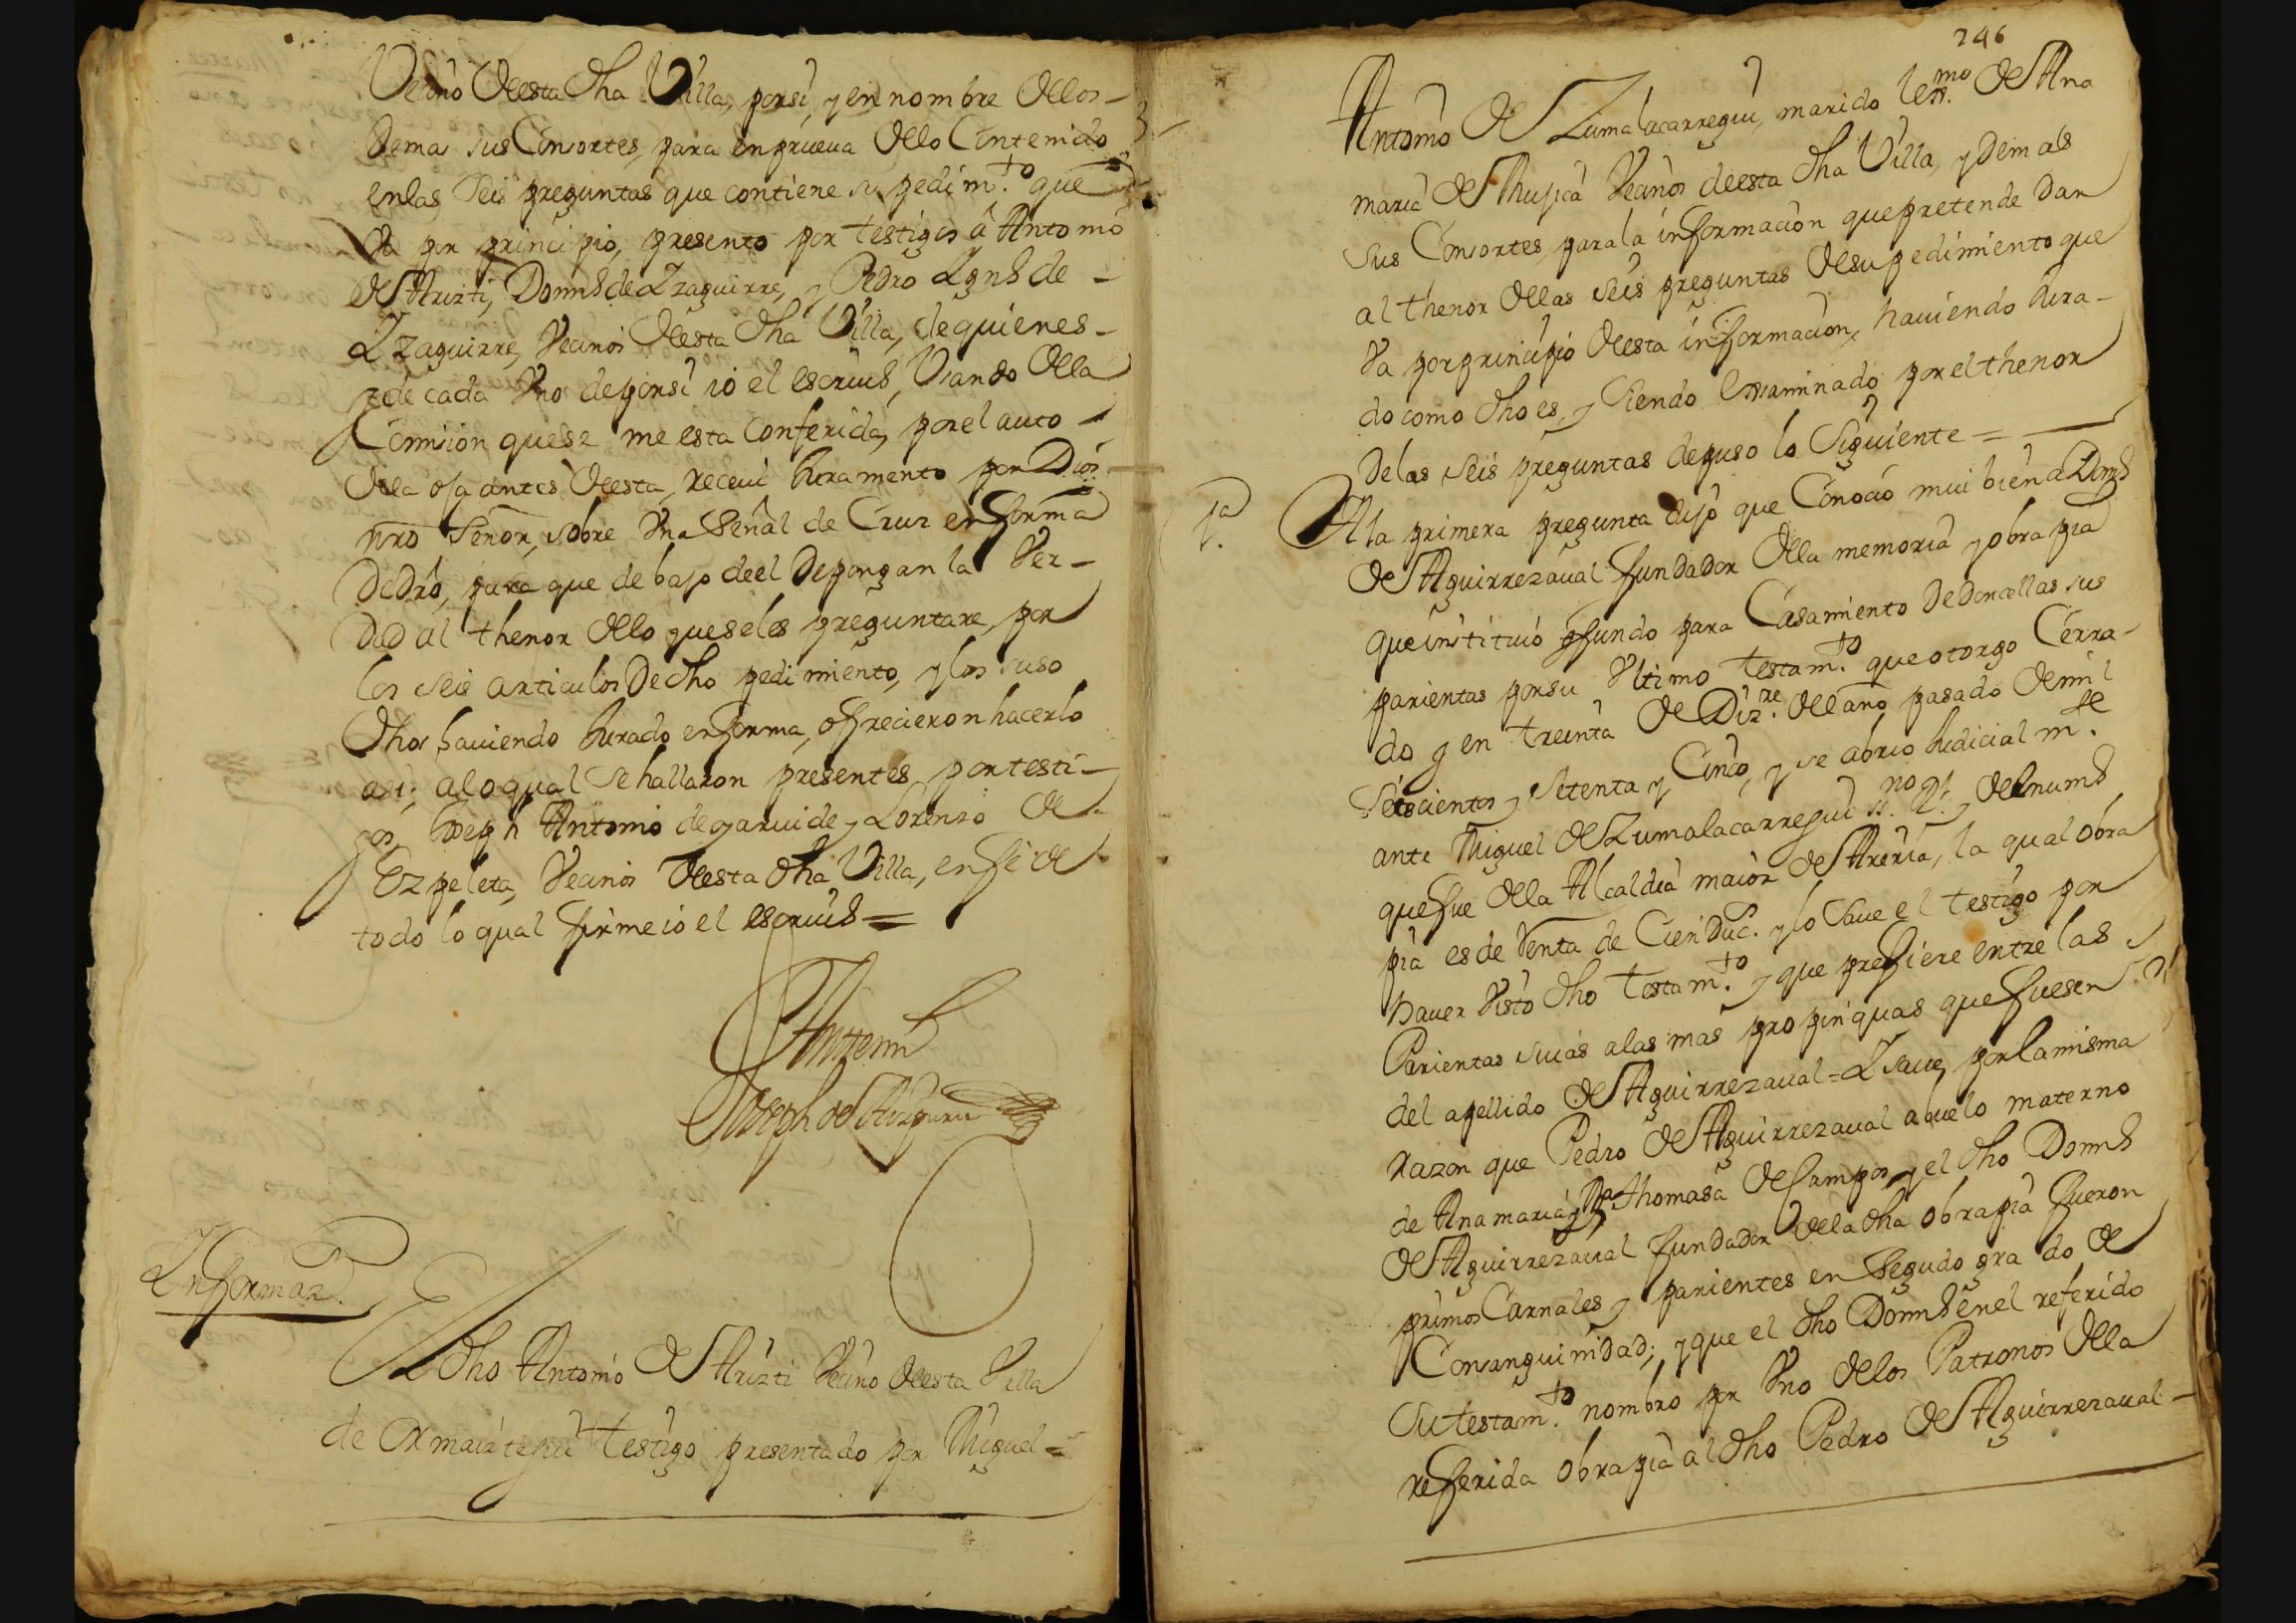 Vecino de esta dha Villa, por si, y en nombre de los
demas sus Consortes, para en prueua de lo Contenido
en las seis preguntas que contiene su pedim.to que
Va por principio, presento por testigos â Antonio
de Arizti, Domo de Yzaguirre, y Pedro Ygno de
Yzaguirre, Vecinos de esta dha Villa, de quienes
y de cada Vno de por si io el escriuo, Vsando de la
Comision que se me esta Conferida, por el auto
de la oja antes de esta, receui Juramento por Dios
nro Señor, sobre Vna señal de Cruz en forma
de dro, para que debajo de el depongan la Ver-
dad al thenor de lo que se les preguntare, por
los seis articulos de dho pedimiento, y los suso
dhos hauiendo Jurado en forma, offrecieron hacerlo
asi; a lo qual se hallaron presentes por testi-
gos, Joseph Antonio de oyaruide y Lorenzo de
Ezpeleta, Vecinos de esta dha Villa, en fe de
todo lo qual firme io el escriuo =
Ante mi
Joseph de
Informaz.
El dho Antonio de Arizti Vecino de esta Villa
de Ormaiztegui testigo presentado por Miguel =
246
Antonio de Zumalacarregui, marido lexmo de Ana
maria de Mujica Vecinos de esta dha Villa, y demas
sus Consortes, para la informacion que pretende dar
al thenor de las seis preguntas de su pedimiento que
Va por principio de esta informacion, hauiendo Jura-
do como dho es, y siendo Examinado por el thenor
de las seis preguntas depuso lo Siguiente =
1.a A la primera pregunta dijo que Conocio mui bien a Domo
de Aguirrezaual fundador de la memoria y obra pia
que instituió y fundo para Casamiento de doncellas sus
parientas por su Vltimo testam.to que otorgo Cerra-
do y en treinta de Diz.re de el año pasado de mil
Setecientos y Setenta y Cinco, y se abrio Judicialm.te
ante Miguel de Zumalacarregui ss.no R.l y del numo
que fue de la Alcaldia maior de Areria, la qual obra
pia es de renta de Cien Duc. y lo saue el testigo por
hauer Visto dho testam.to y que prefiere entre las
Parientas suias a las mas propinquas que fuesen
del apellido de Aguirrezaual = Y saue, por la misma
razon que Pedro de Aguirrezaual abuelo materno
de Ana maria, y M.a thomasa de Campos, y el dho Domo
de Aguirrezaual fundador de la dha obra pia fueron
primos Carnales y parientes en Segudo grado de
Consanguinidad; y que el dho Domo en el referido
Su testam.to nombro por Vno de los Patronos de la
referida obra pia al dho Pedro de Aguirrezaual -